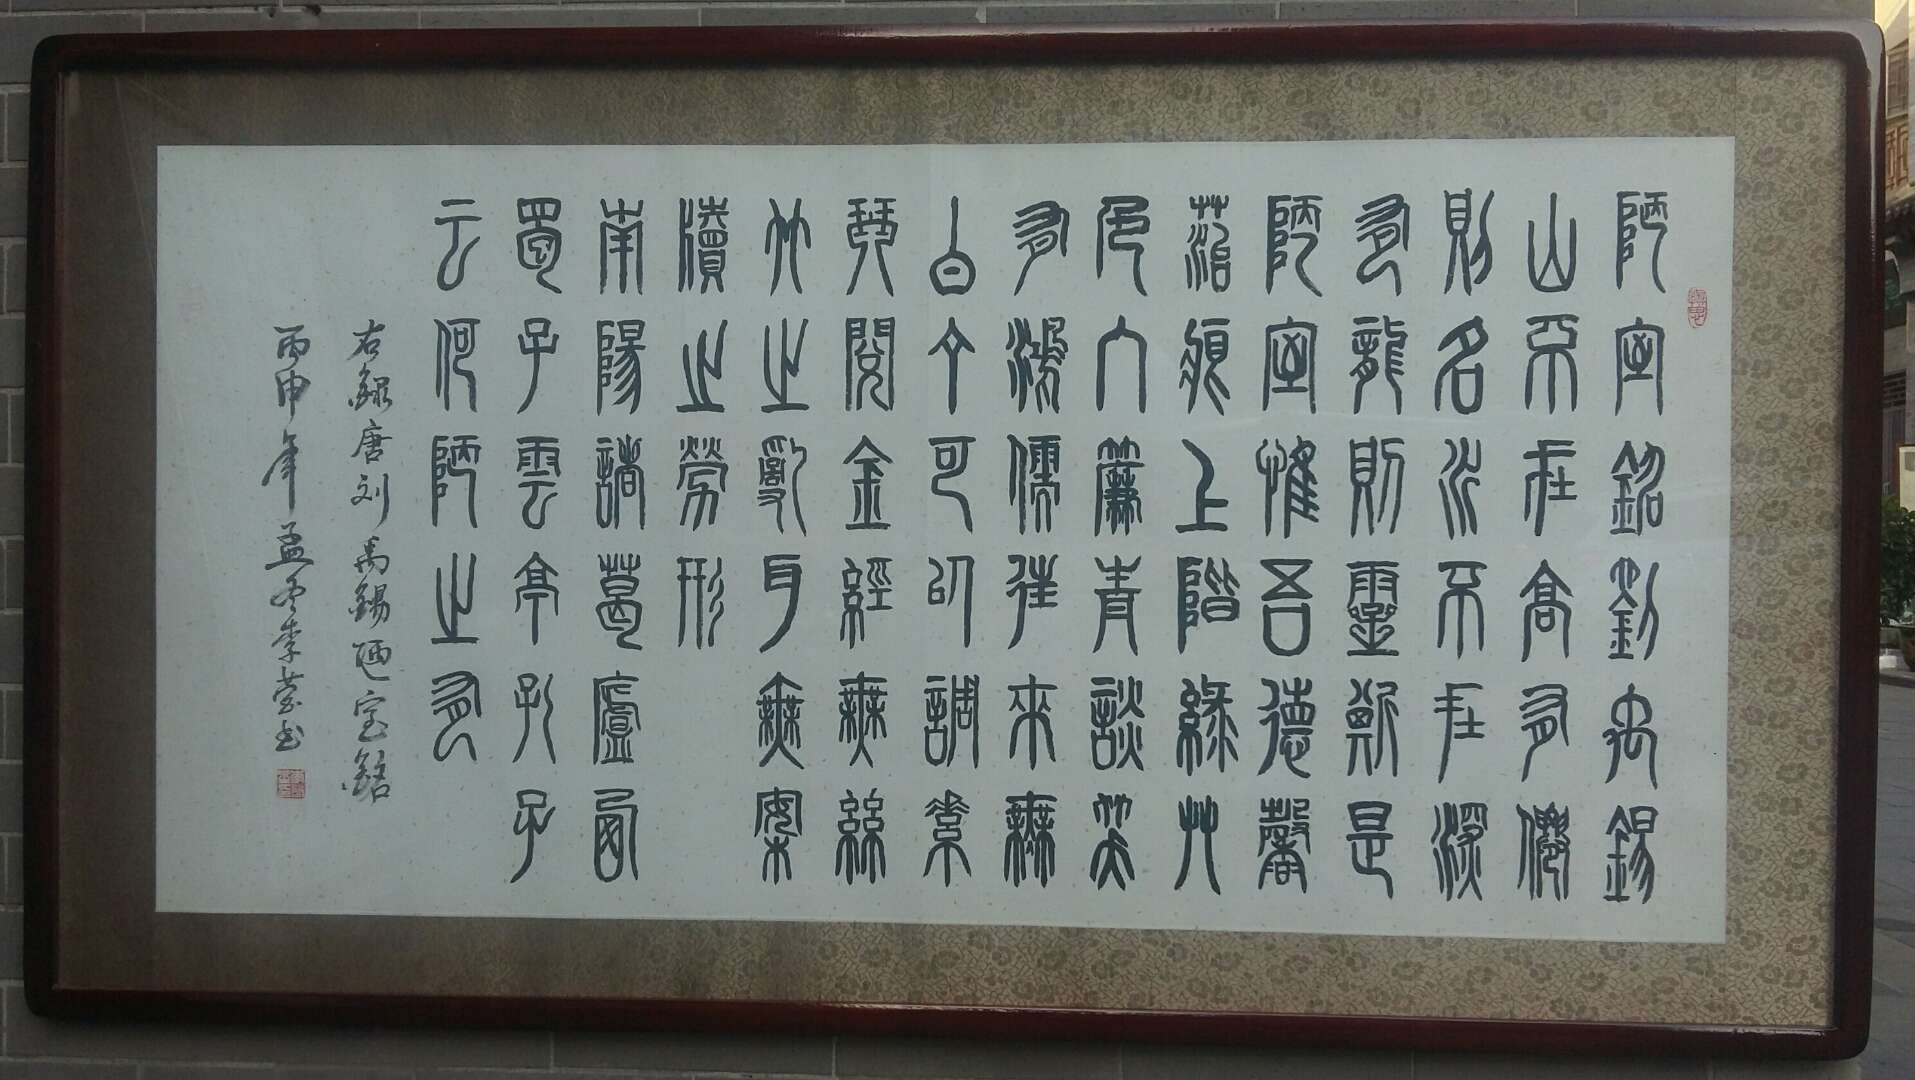 陋室銘劉禹錫
山不在高有僊
則名水不在深
有龍則靈斯是
陋室惟吾德馨
菭痕上階綠艸
色入簾青談笑
有鴻儒往來無
白丁可以調素
琴閱金經無絲
竹之亂耳無案
牘之勞形
南陽諸葛廬西
蜀子雲亭孔子
云何陋之有
右録唐刘禹錫陋室銘
丙申年孟冬李莹书